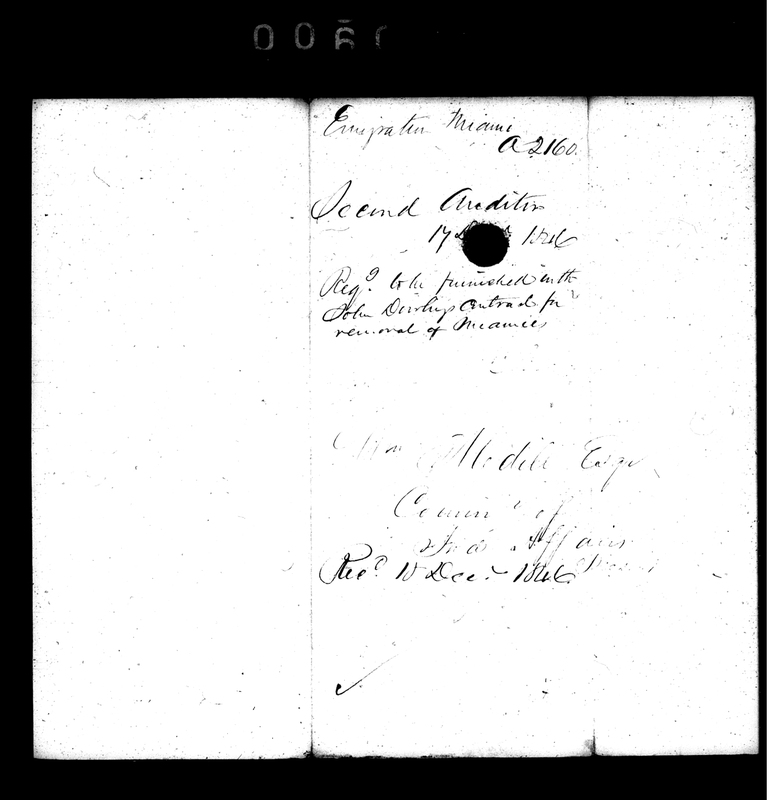 Emigration Miami
A 2160.
Second Auditor
17 1846
Reqd to be furnished with
John Dowling contract for
removal of Miamies
Wm Medill Esqr
Comm of
Ind. Affairs
Recd 18 Decr 1846